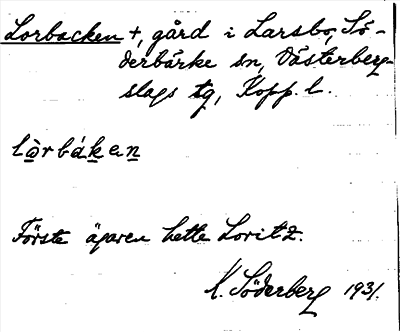 Lorbacken +, gård i Larsbo, Sö-
derbärke sn, Västerberg-
slags tg, Kopp. l.
lòrbáken
Förste ägaren hette Loritz.
K. Söderberg 1931.